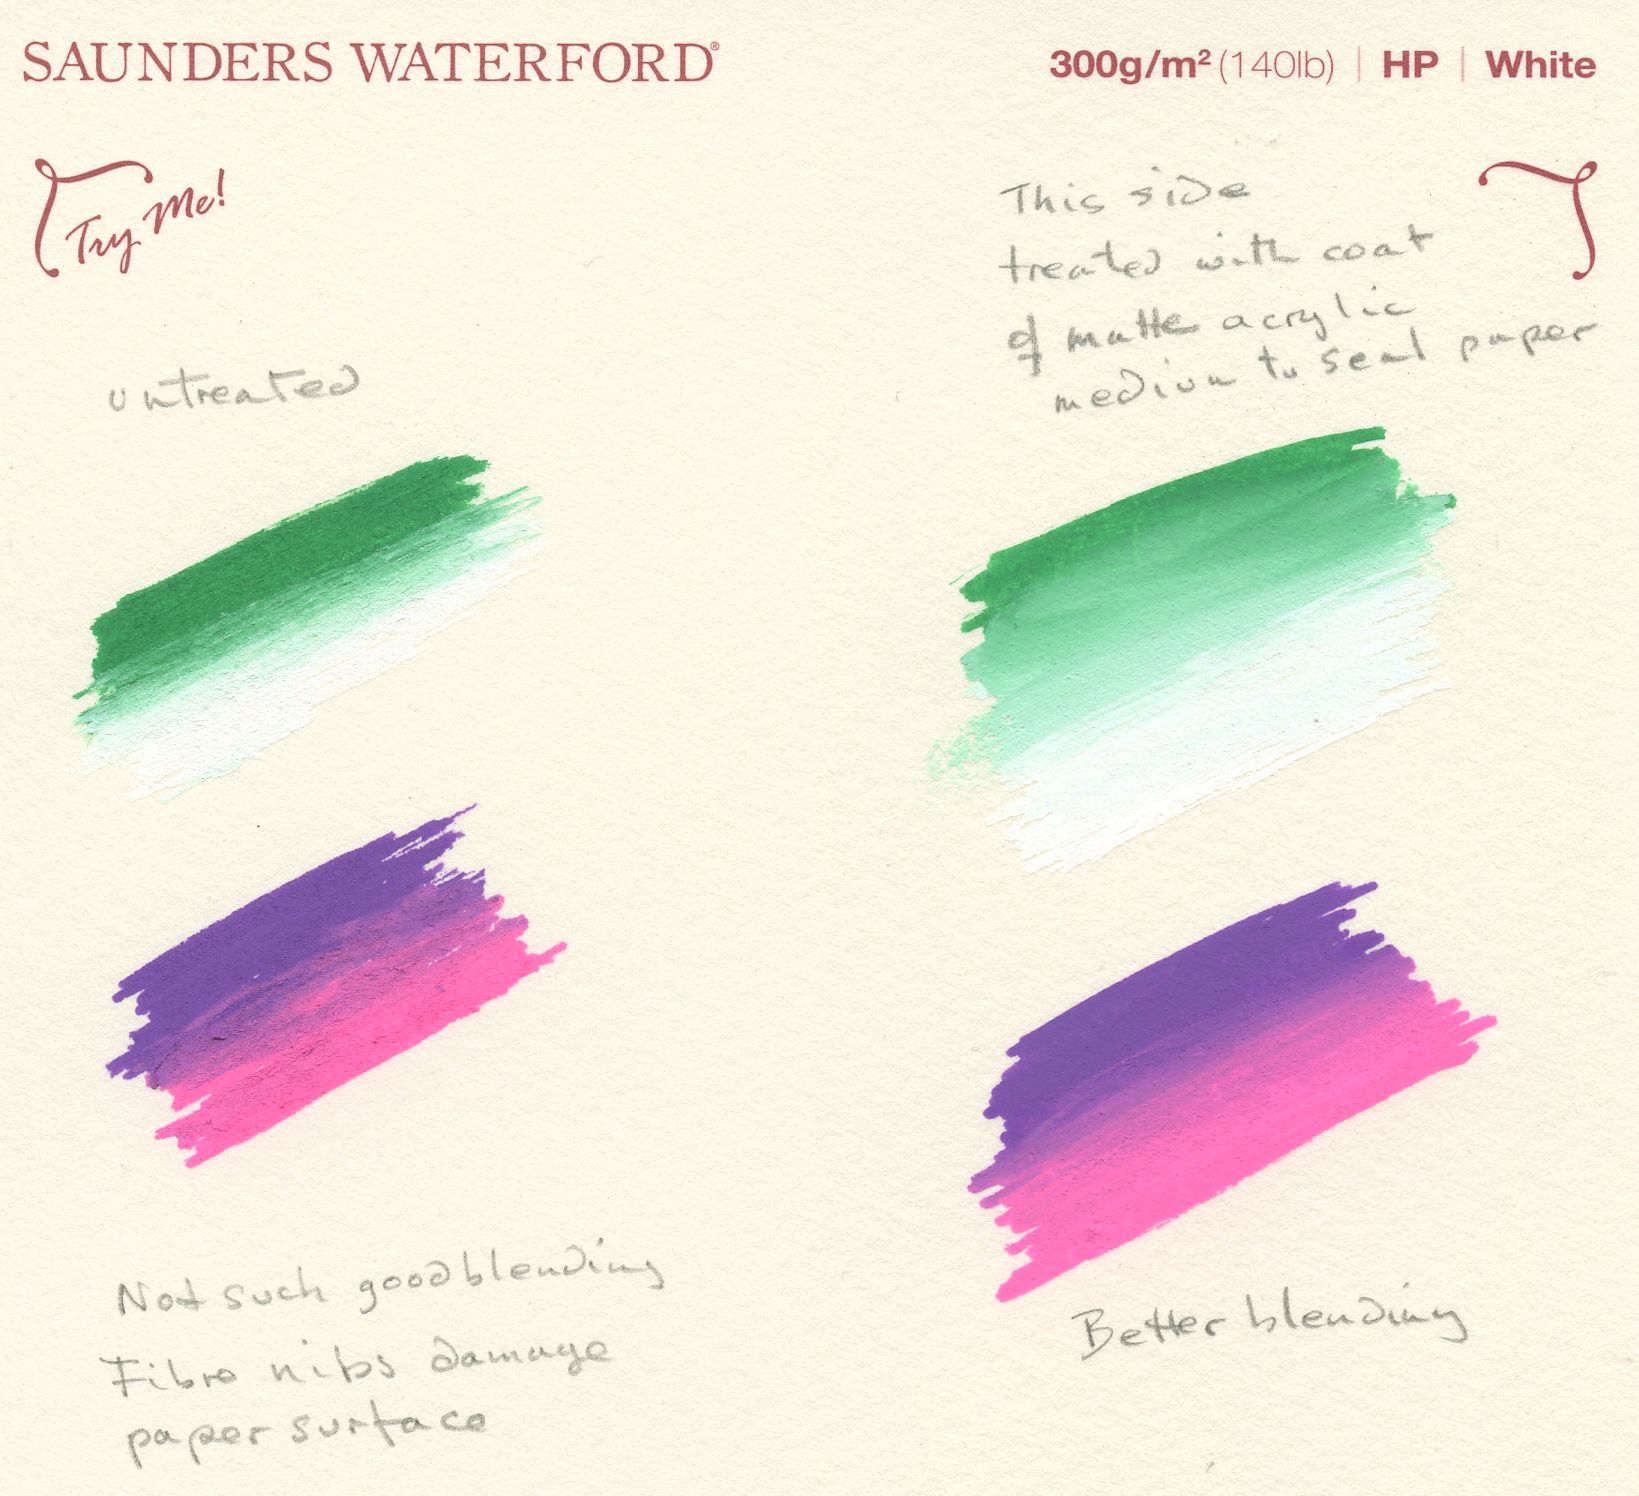 SAUNDERS WATERFORD®
300g/m² (140lb) | HP | White
Try Me!
This side
treated with coat
of matte acrylic
medium to seal paper
untreated
Not such good blending
Fibre nibs damage
paper surface
Better blending